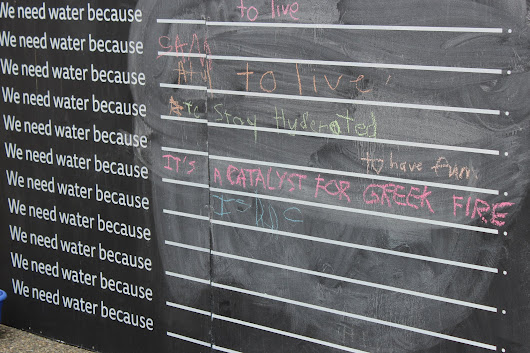 We need water because to live.
We need water because.
We need water because to live.
We need water because to Stay Hyderated.
We need water because to have fun.
We need water because IT'S A CATALYST FOR GREEK FIRE.
We need water because.
We need water because.
We need water because.
We need water because
We need water because